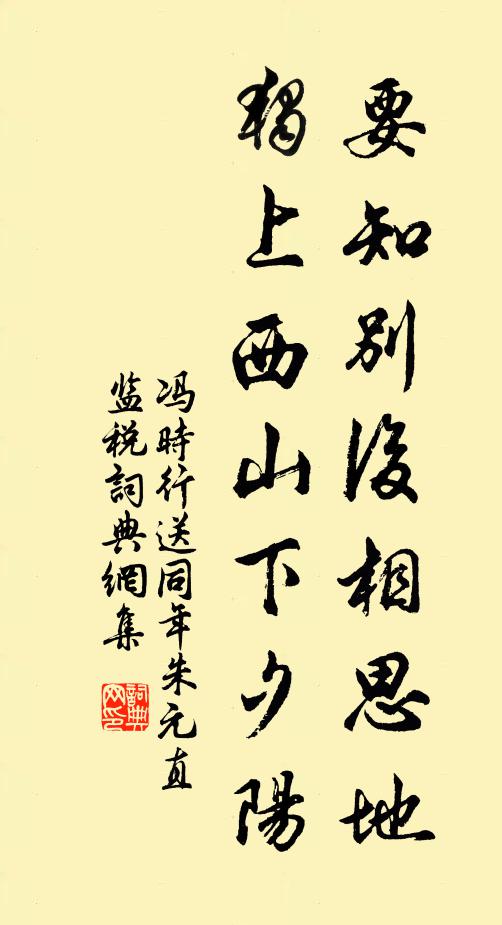 要知別後相思地
獨上西山下夕陽
冯時行送同年朱元直
监税詞典網集
詞典网印